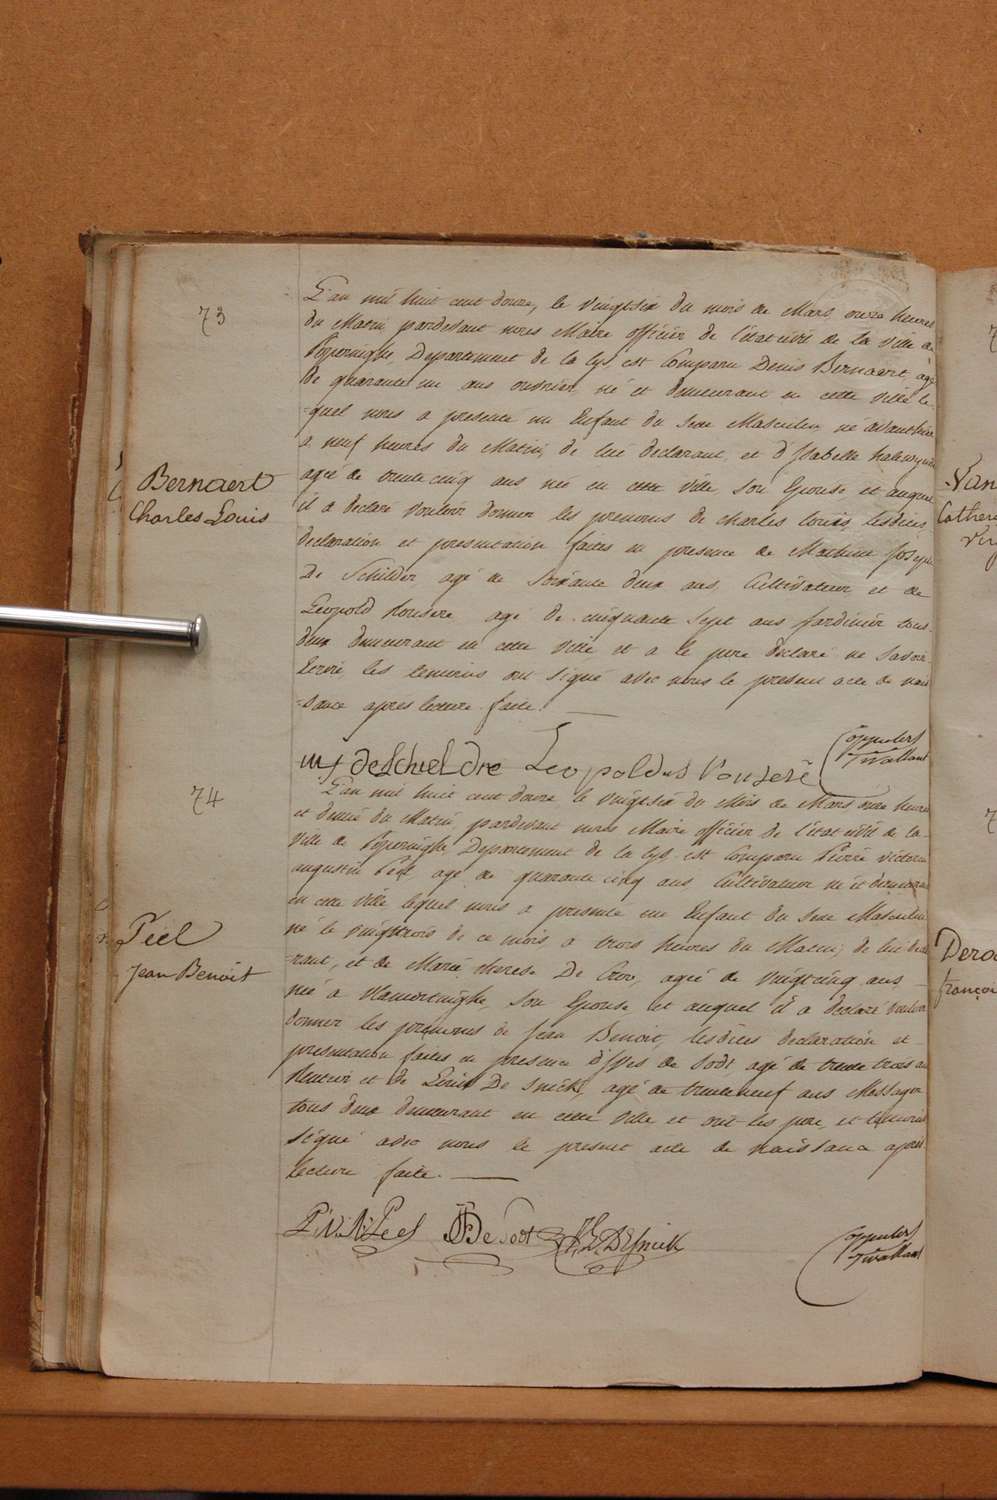 73
L'an mil huit cent douze, le vingtsix du mois de Mars onze heures
du Matin, pardevant nous Maire officier de l'état civil de la ville de
Poperinghe, Departement de la Lys, est Comparu Denis Bernaert, agé
de quarante un ans ouvrier, né et demeurant en cette ville le-
-quel nous a presenté un Enfant du Sexe Masculin, né avanthier
a neuf heures du Matin, de lui declarant, et d'Isabelle
agée de trente cinq ans née en cette ville, son Epouse, et auquel
Bernaert
Charles Louis
il a declaré vouloir donner les prenoms de Charles Louis, lesdites
declaration et presentation faites en presence de Mathieu Joseph
De Schilder agé de Soixante deux ans, Cultivateur, et de
Leopold agé de cinquante Sept ans Jardinier tous
deux demeurant en cette ville et a le pere declaré ne Savoir
Ecrire, les temoins ont signé avec nous le present acte de nais
-sance apres lecture faite.
mj deSchieldre Leopoldus
74
L'an mil huit cent douze, le vingtsix du Mois de Mars onze heures
et demie du Matin, pardevant nous Maire officier de l'état civil de la
ville de Poperinghe, Departement de la Lys, est Comparu Pierre victorin
augustin Peel agé de quarante cinq ans Cultivateur né et demeurant
en cette ville lequel nous a presenté un Enfant du Sexe Masculin
né le vingttrois de ce mois a trois heures du Matin, de lui decla
Peel
Jean Benoit
-rant, et de Marie therese De Croo, agée de vingtcinq ans
née a Vlamertinghe, son Epouse et auquel il a declaré vouloir
donner les prenoms de Jean Benoit, lesdites declaration et
presentation faites en presence d' de Sodt, agé de trente trois ans
Rentier et de De Snick, agé de trenteneuf ans Messager
tous deux demeurant en cette ville et ont les pere, et temoins
signé avec nous le present acte de naissance apres
lecture faite.
P: V: A: Peel De Sodt DeSnick
Van
Cather
Dero
françoi